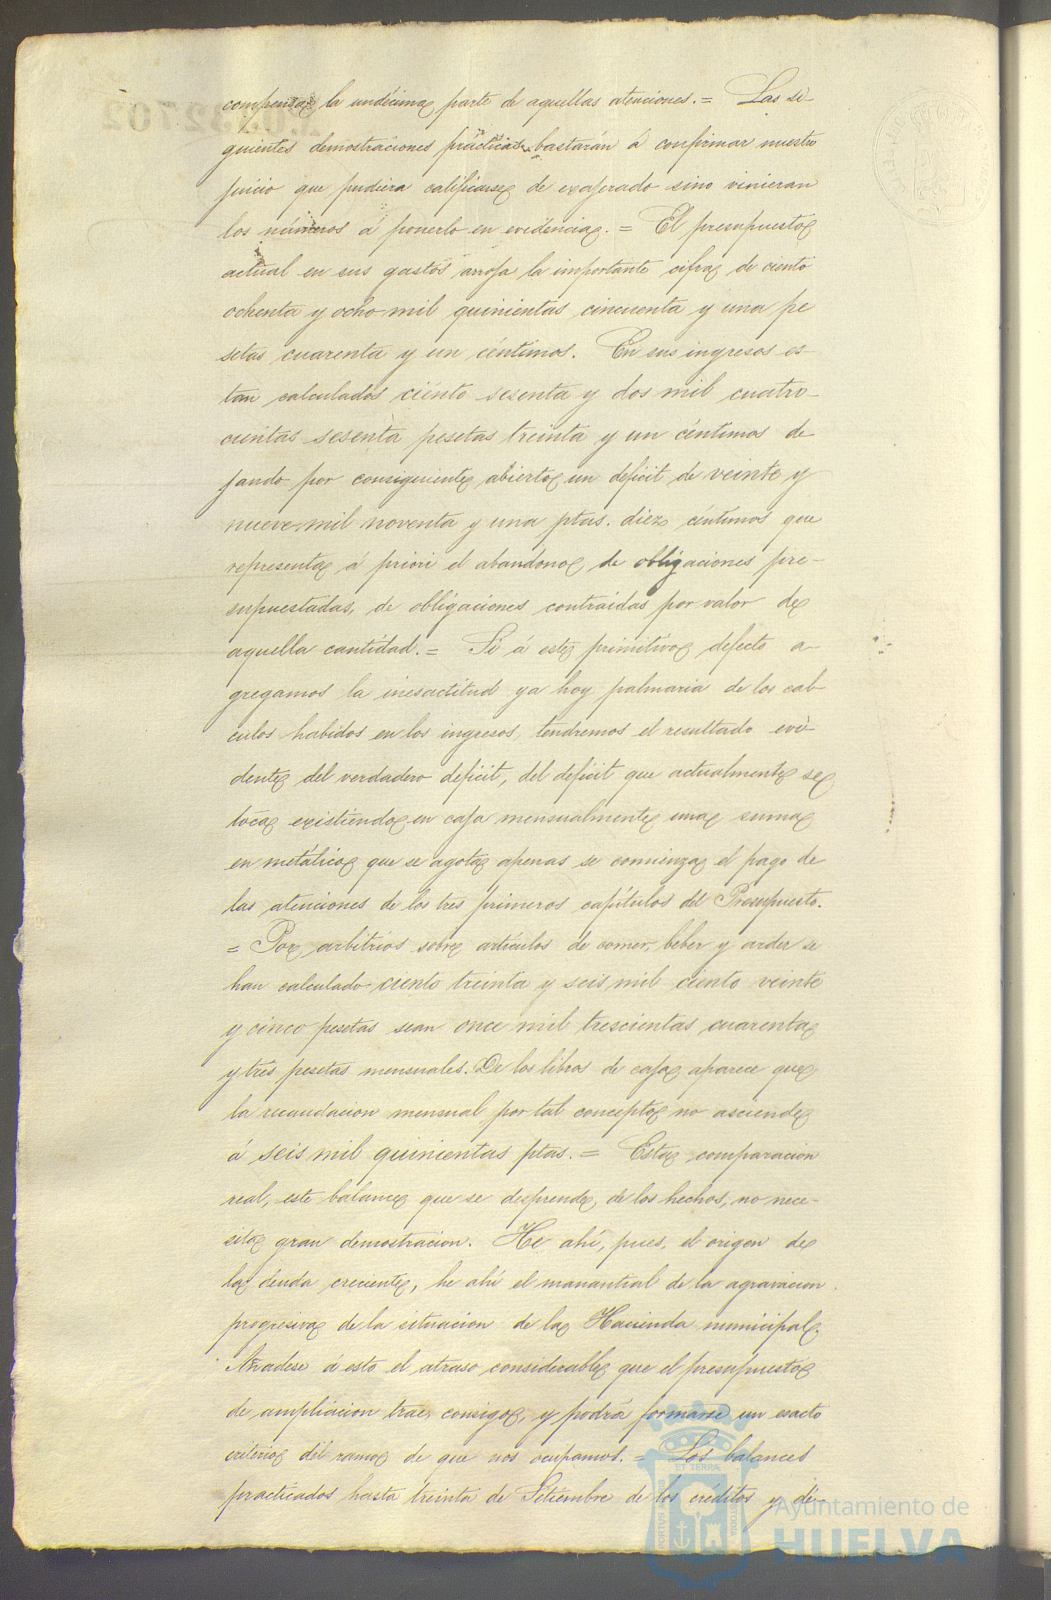 compensar la undécima parte de aquellas atenciones.= Las si-
guientes demostraciones prácticas bastarán á confirmar nuestro
juicio que pudiera calificarse de exajerado sino vinieran
los números á ponerlo en evidencia. = El presupuesto
actual en sus gastos arroja la importante cifra de ciento
ochenta y ocho mil quinientas cincuenta y una pe
setas cuarenta y un céntimos. En sus ingresos es-
tan calculados ciento sesenta y dos mil cuatro-
cientas sesenta pesetas treinta y un céntimos de
jando por consiguiente abierto un deficit de veinte y
nueve mil noventa y una ptas. diez céntimos que
representa á priori el abandono de obligaciones pre-
supuestadas, de obligaciones contraidas por valor de
aquella cantidad.= Si á este primitivo defecto a-
gregamos la inesactitud ya hoy palmaria de los cal-
culos habidos en los ingresos, tendremos el resultado evi-
dente del verdadero deficit, del deficit que actualmente se
toca existiendo en caja mensualmente una suma
en metálico que se agota apenas se comienza el pago de
las atenciones de los tres primeros capítulos del Presupuesto.
= Por arbitrios sobre artículos de comer, beber y arder se
han calculado ciento treinta y seis mil ciento veinte
y cinco pesetas sean once mil trescientas cuarenta
y tres pesetas mensuales. De los libros de caja aparece que
la recaudacion mensual por tal concepto no asciende
á seis mil quinientas ptas. = Esta comparacion
real, este balance que se desprende de los hechos, no nece-
sita gran demostracion. He ahí, pues, el origen de
la deuda creciente, he ahí el manantial de la agravacion
progresiva de la situacion de la Hacienda municipal.
Añadese á esto el atraso considerable que el presupuesto
de ampliacion trae consigo, y podrá formarse un esacto
criterio del ramo de que nos ocupamos. = Los balances
practicados hasta treinta de Setiembre de los créditos y dé-
Ayuntamiento de
HUELVA